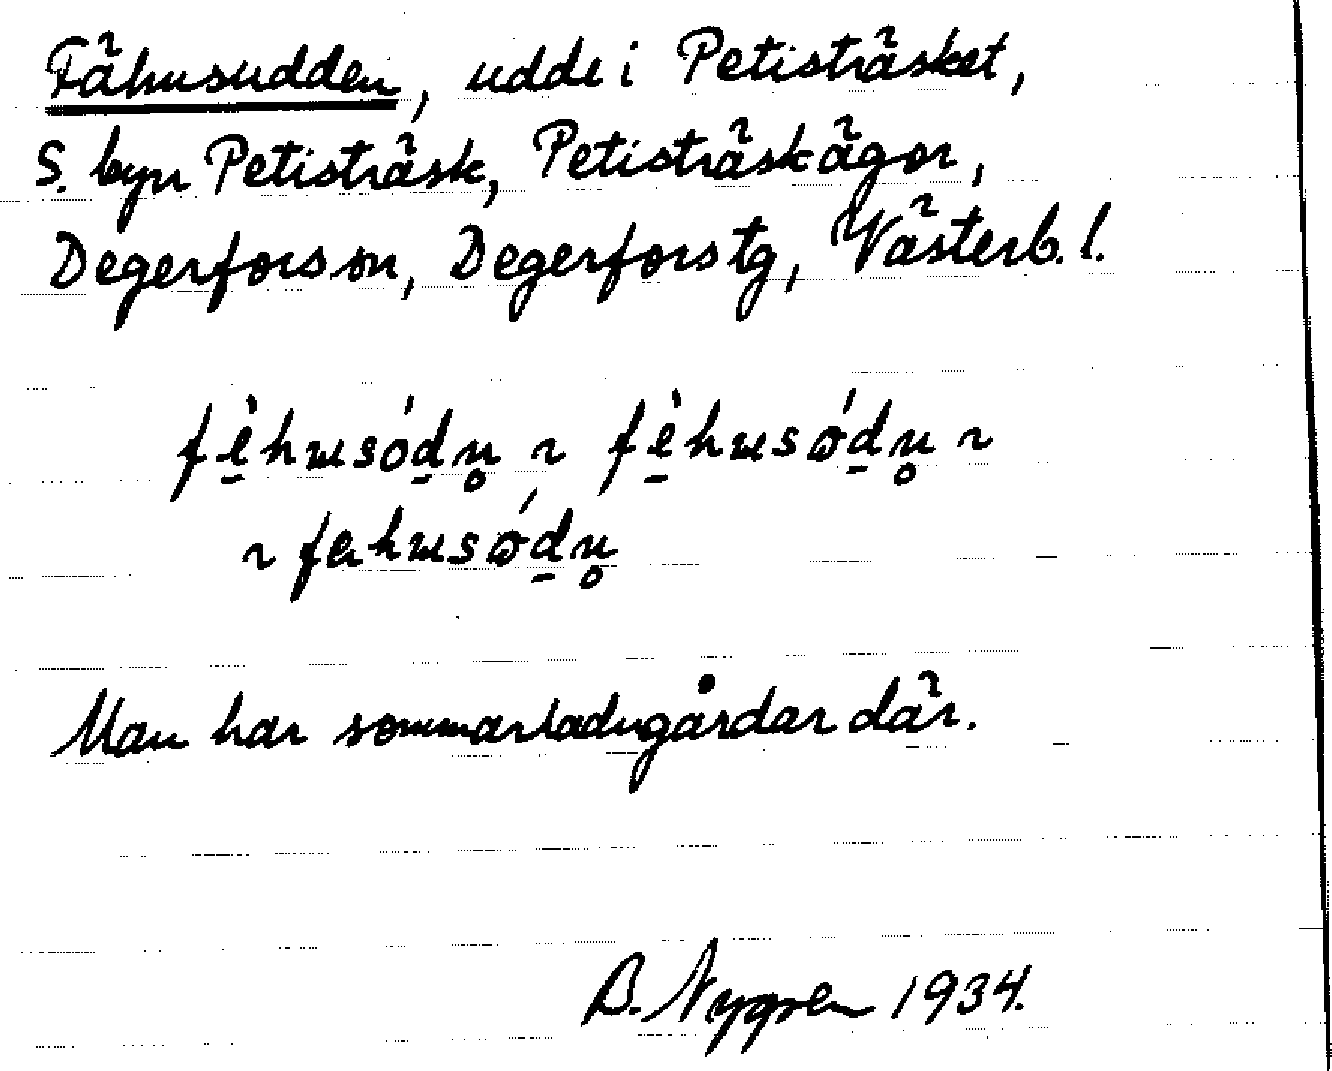 Fähusudden, udde i Petisträsket,
S. byn Petisträsk, Petisträskägor,
Degerforss sn, Degerfors tg, Västerb. l.
fè̱husóḏn̥ ~ fè̱husǿḏn̥ ~
~ fæhusǿḏn̥
Man har sommarladugårdar där.
B. Nygren 1934.